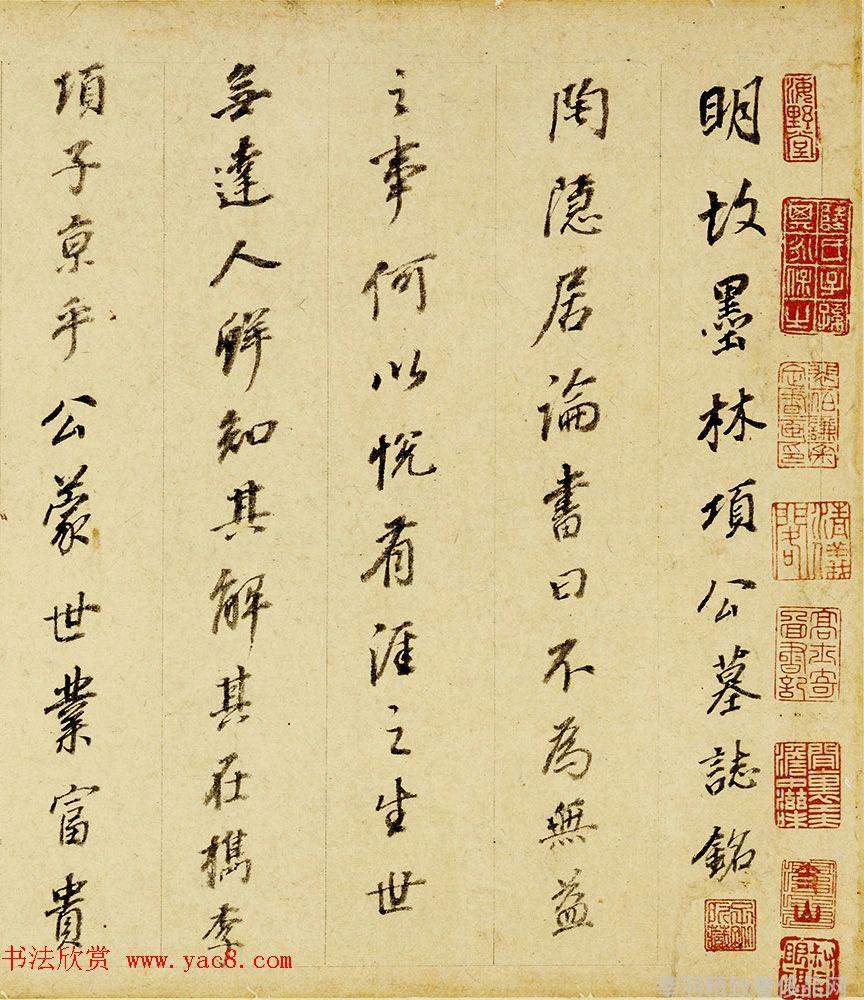 明故墨林項公墓誌銘
陶隱居論書曰不為無益
之事何以悅有涯之生世
無達人鮮知其解其在檇李
項子京乎公蒙世業富貴
海野堂
书法欣赏 www.yac8.com